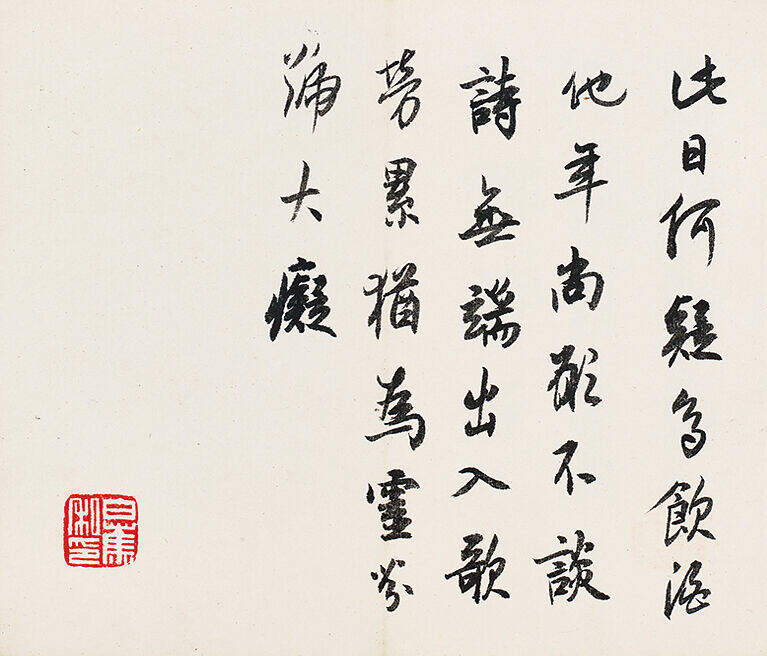 此日何疑多飲酒
他年尚不談
詩無端出入歌
累猶為靈芬
號大癡